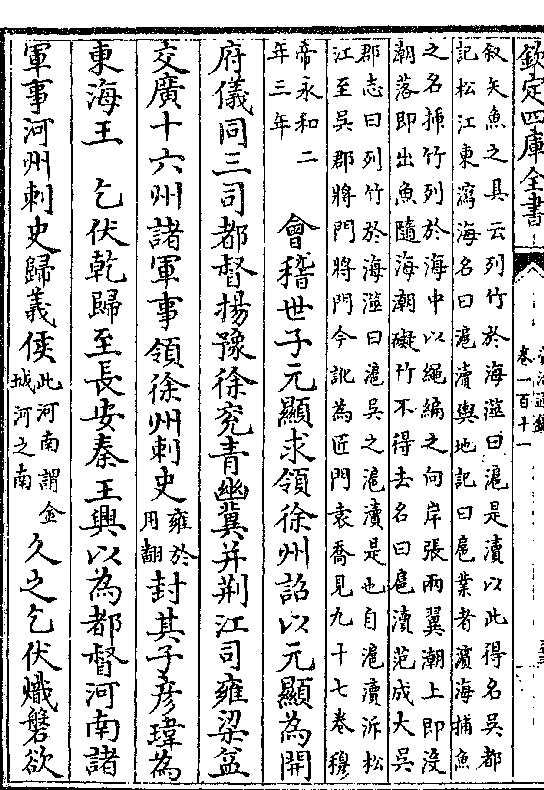 欽定四庫全書
卷一百十一
叙矢魚之具云列竹於海澨曰滬是瀆以此得名吳都
記松江東瀉海名曰滬瀆輿地記曰扈業者濵海捕魚
之名揷竹列於海中以繩編之向岸張兩翼潮上即没
潮落即出魚隨海潮礙竹不得去名曰扈瀆范成大吳
郡志曰列竹於海澨曰滬吳之滬瀆是也自滬瀆泝松
江至吳郡將門將門今訛為匠門袁喬見九十七卷穆
帝永和二年三年　會稽世子元顯求領徐州詔以元顯為開
府儀同三司都督揚豫徐兖青幽冀并荆江司雍梁益
交廣十六州諸軍事領徐州刺史雍於用翻封其子彦瑋為
東海王　乞伏乾歸至長安秦王興以為都督河南諸
軍事河州刺史歸義侯此河南謂金城河之南久之乞伏熾磐欲